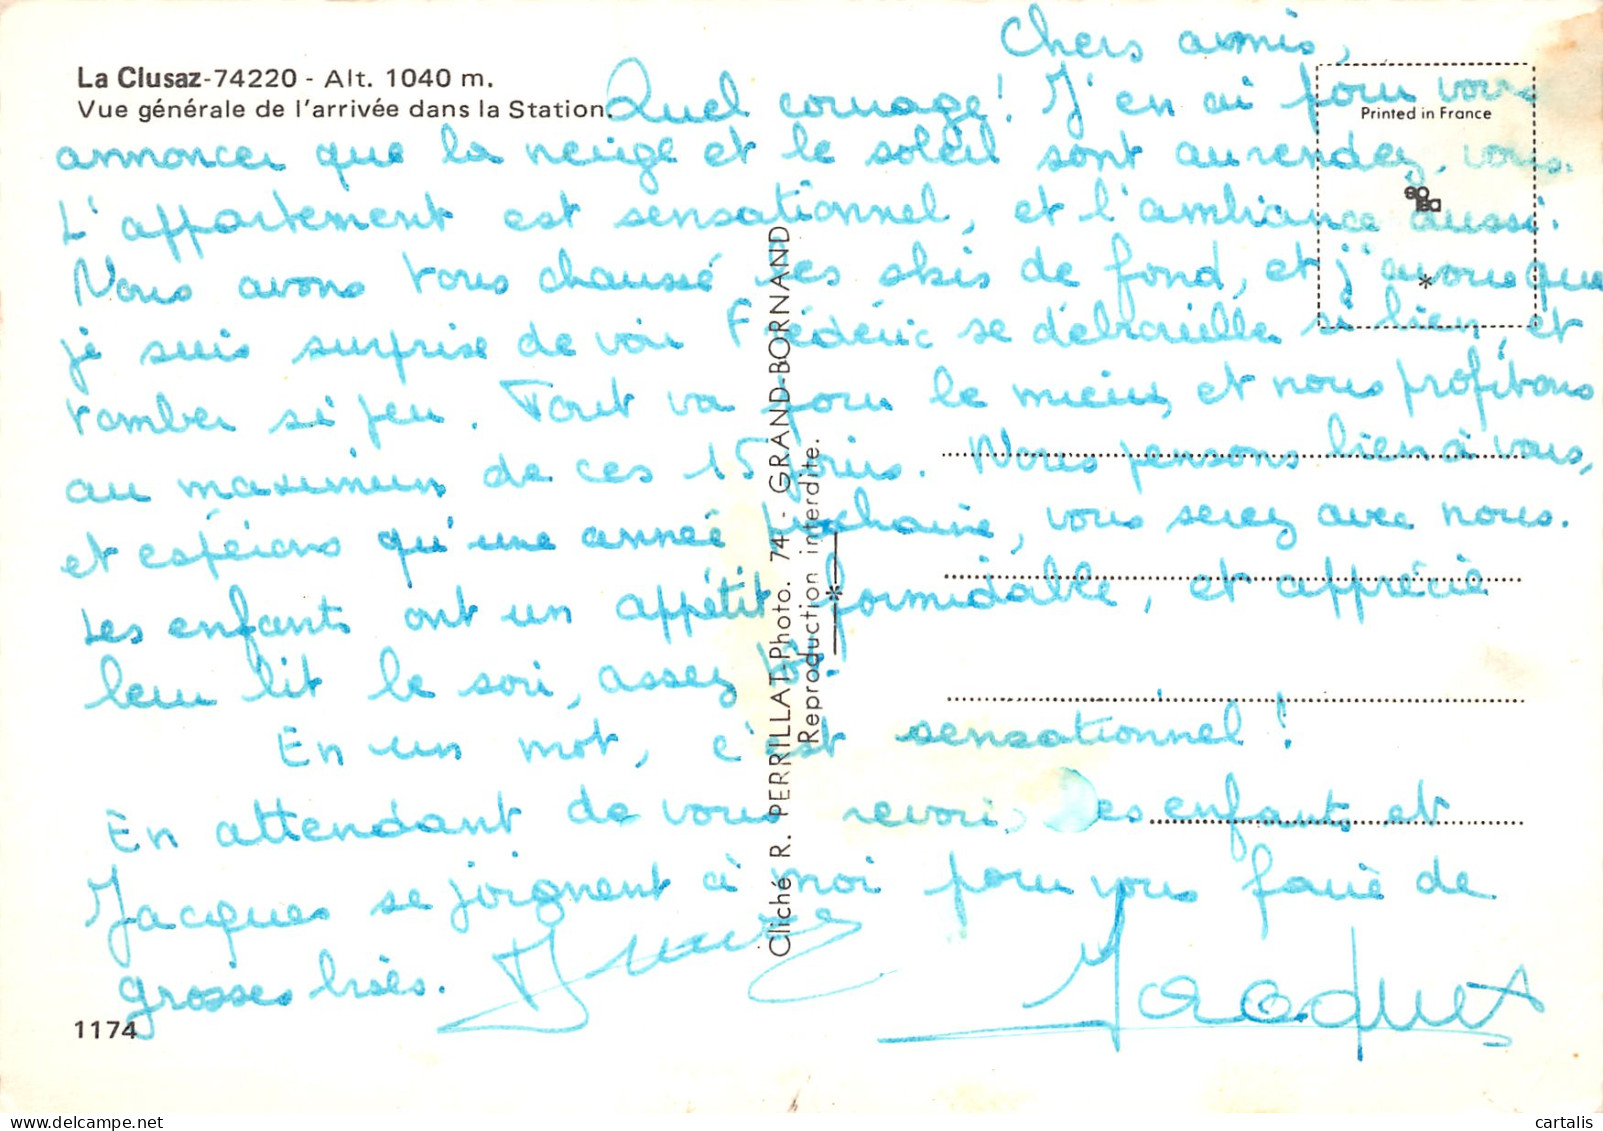 La Clusaz-74220 - Alt. 1040 m.
Vue générale de l'arrivée dans la Station.
Printed in France
Chers amis,
Quel courage! J'en ai pour vous
annoncer que la neige et le soleil sont au rendez-vous.
L'appartement est sensationnel, et l'ambiance aussi.
Nous avons tous chaussé les skis de fond, et j'avoue que
je suis surprise de voir Frédéric se débrouiller si bien, et
tomber si peu. Tout va pour le mieux, et nous profitons
au maximum de ces 15 jours. Nous pensons bien à vous,
et espérons qu'une année prochaine, vous serez avec nous.
Les enfants ont un appétit formidable, et apprécie
leur lit le soir, assez tôt.
En un mot, c'est sensationnel!
En attendant de vous revoir, les enfants et
Jacques se joignent à moi pour vous faire de
grosses bises.
Jacques
Cliché R. PERRILLAT-Photo. 74 - GRAND-BORNAND
Reproduction interdite.
1174
cartalis